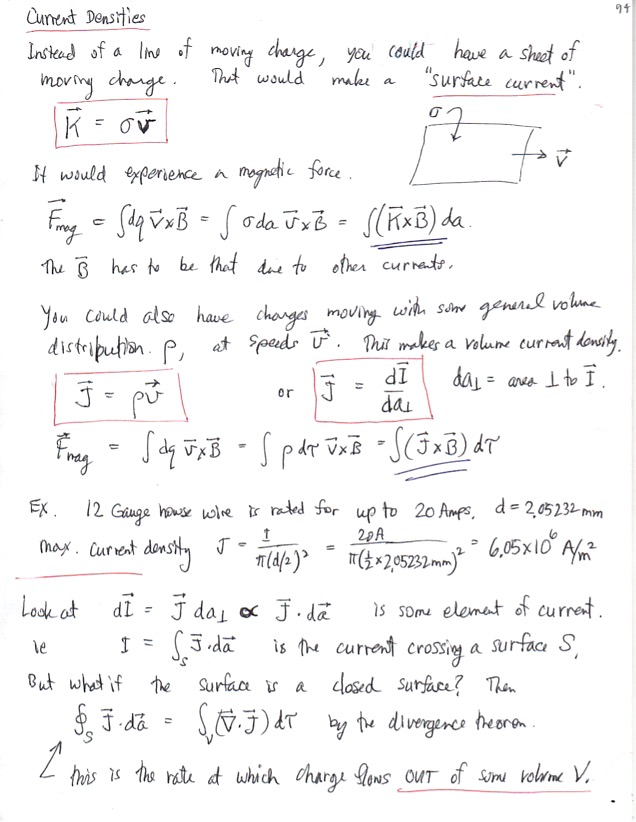 94
Current Densities
Instead of a line of moving charge, you could have a sheet of
moving charge. That would make a "surface current".
K⃗ = σv⃗
σ
v⃗
It would experience a magnetic force.
F⃗mag = ∫dq v⃗×B⃗ = ∫ σda v⃗×B⃗ = ∫(K⃗×B⃗) da.
The B⃗ has to be that due to other currents.
You could also have charges moving with some general volume
distribution. ρ, at speeds v⃗. This makes a volume current density.
J⃗ = ρv⃗ or J⃗ = dI⃗/da⊥ da⊥ = area ⊥ to I⃗.
F⃗mag = ∫dq v⃗×B⃗ = ∫ ρdτ v⃗×B⃗ = ∫(J⃗×B⃗) dτ
Ex. 12 Gauge house wire is rated for up to 20 Amps, d = 2.05232 mm
max. current density J = I/π(d/2)² = 20A/π(½×2.05232mm)² = 6.05×10⁶ A/m²
Look at dI⃗ = J⃗ da⊥ ∝ J⃗·da⃗ is some element of current.
ie I = ∫S J⃗·da⃗ is the current crossing a surface S,
But what if the surface is a closed surface? Then
∮S J⃗·da⃗ = ∫V(∇⃗·J⃗) dτ by the divergence theorem.
this is the rate at which charge flows OUT of some volume V.